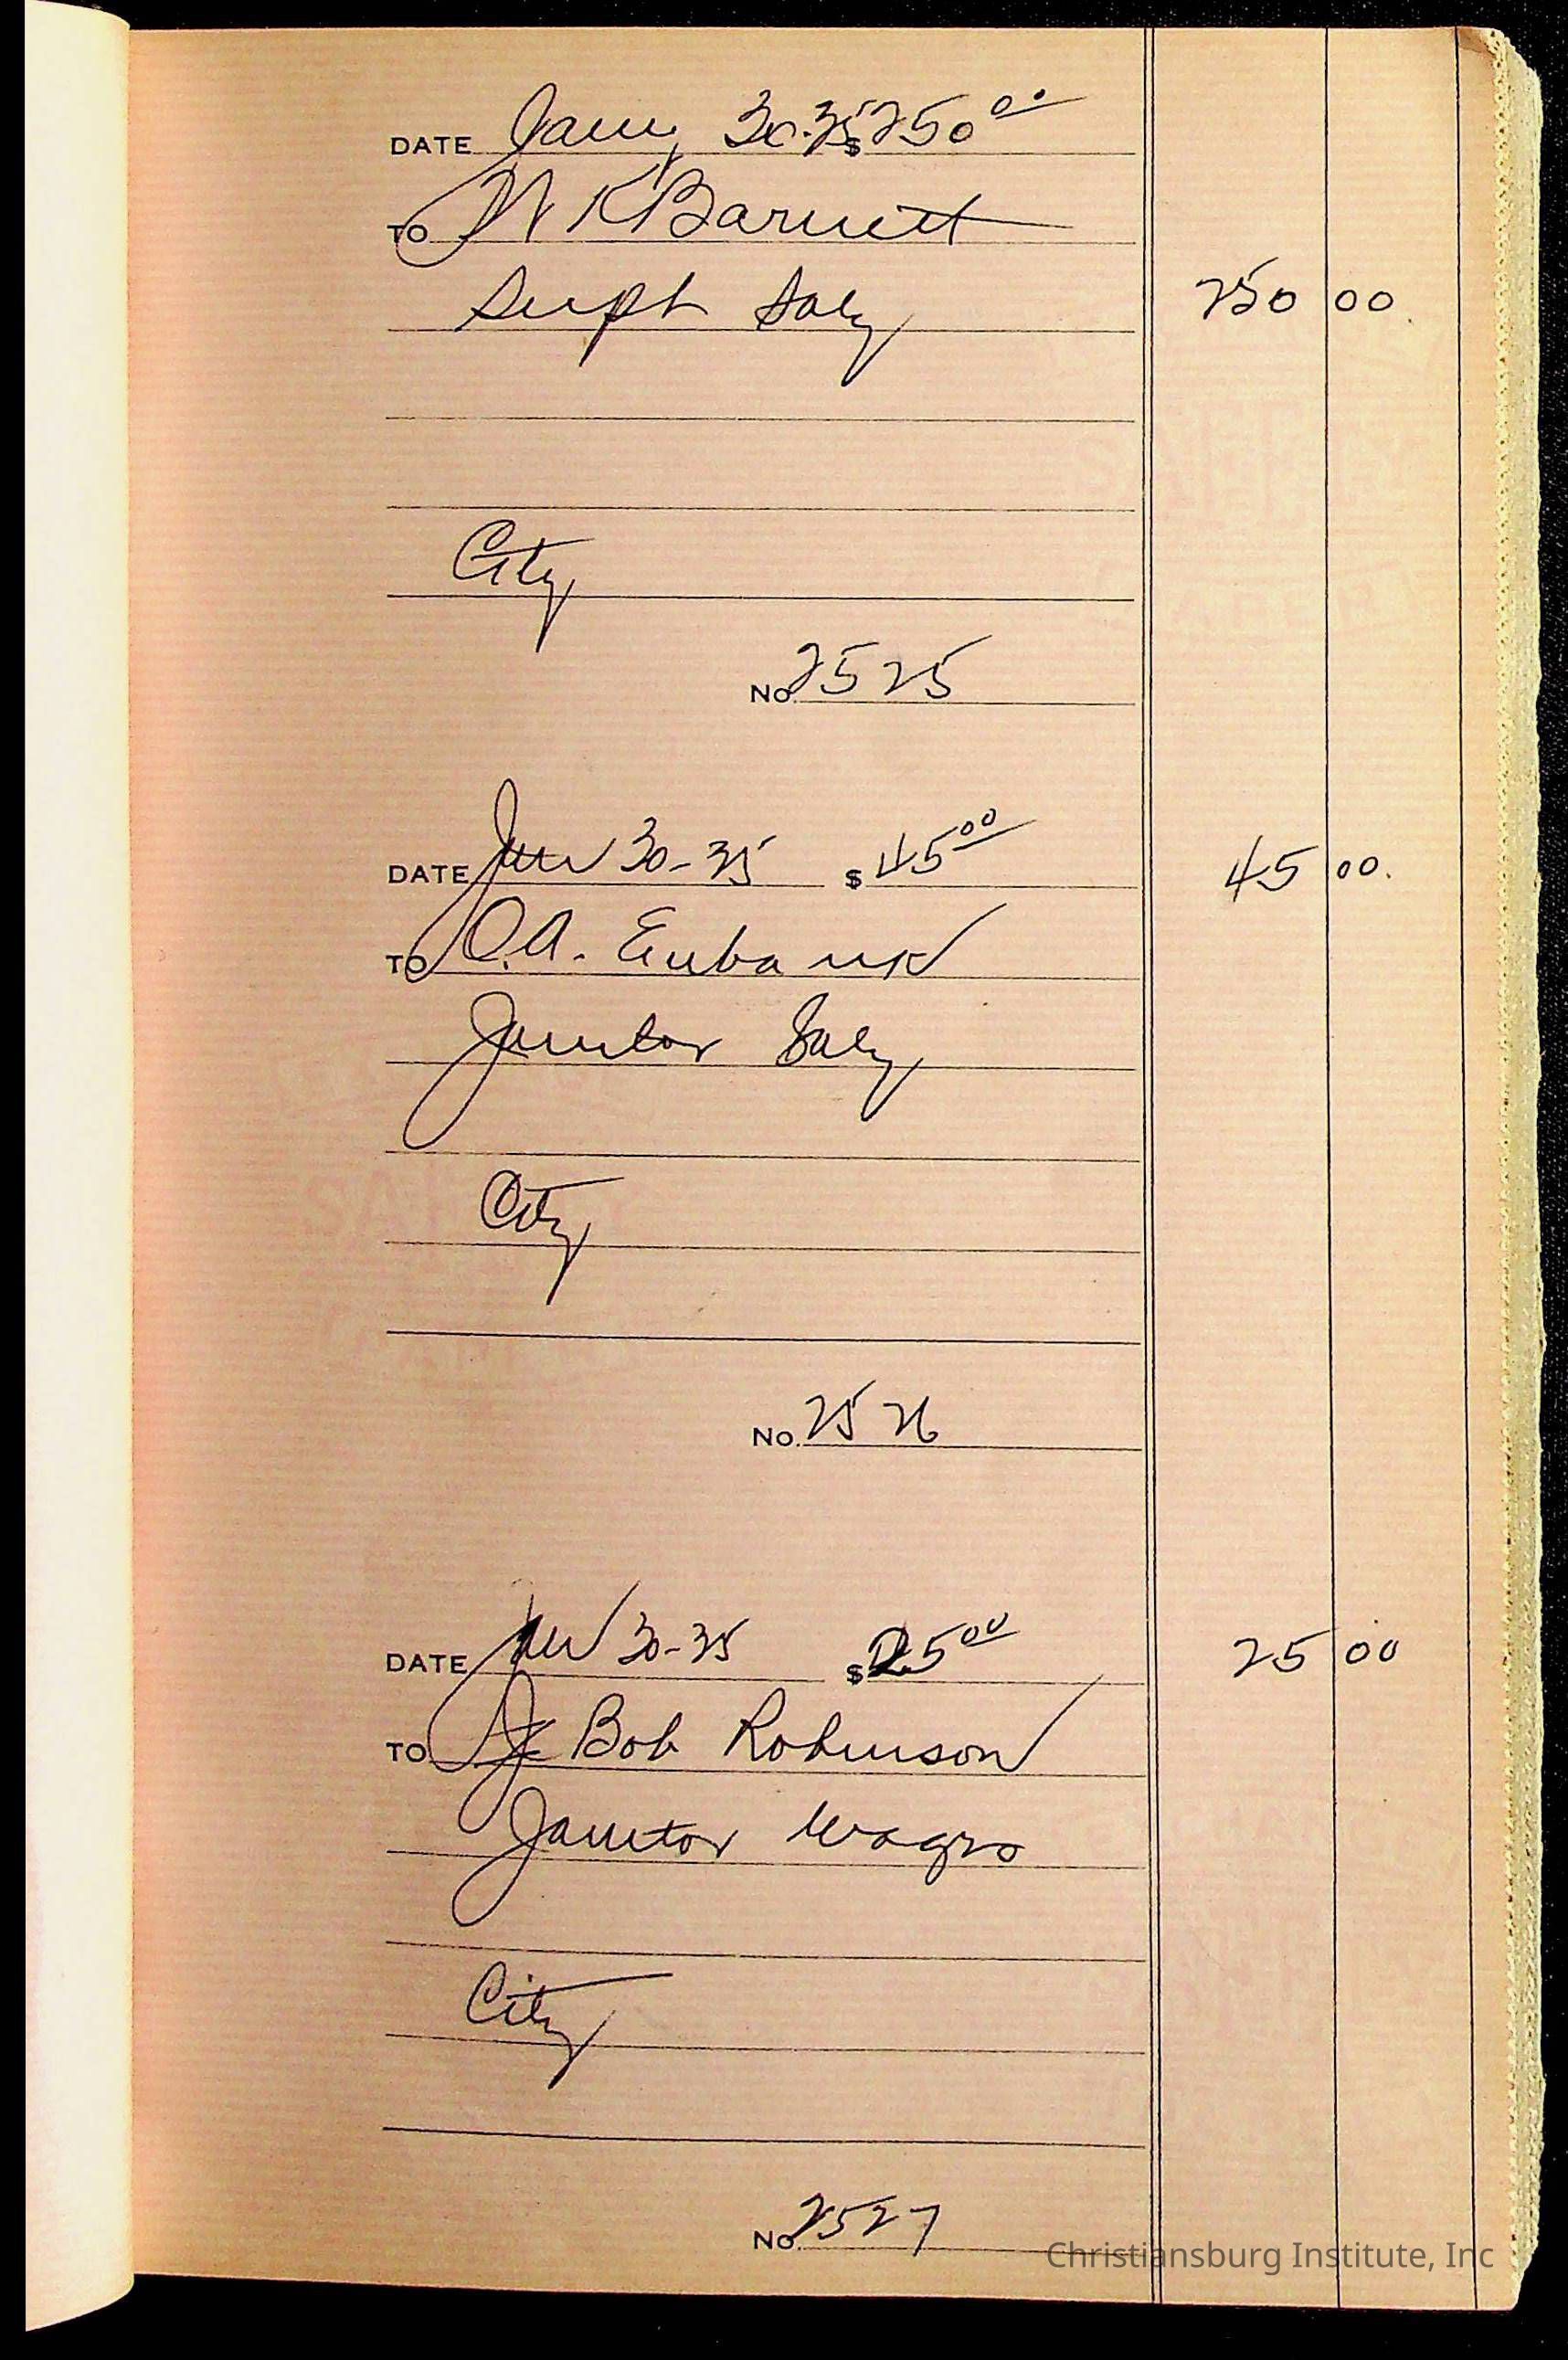 DATE Jany 30-35 $ 250 00
TO W K Barnett
Supt Saly 250 00
City
No. 2525
DATE Jan 30-35 $ 45 00 45 00
TO O.A. Eubank
Janitor Saly
City
No. 2526
DATE Jan 30-35 $ 25 00 25 00
TO Bob Robinson
Janitor Wages
City
No. 2527
Christiansburg Institute, Inc